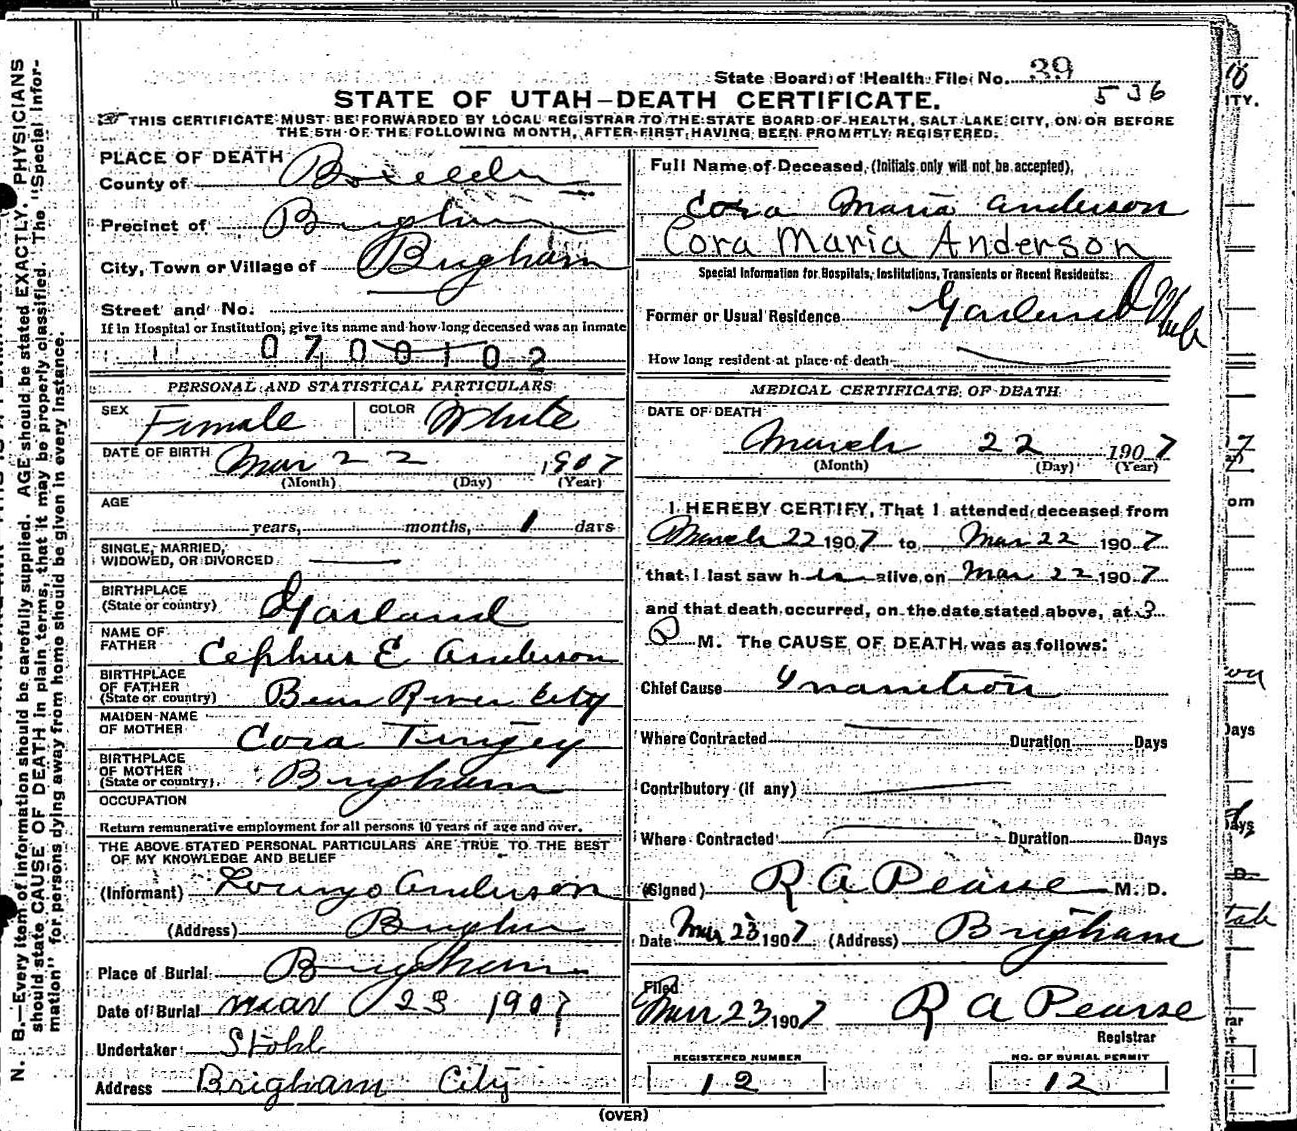 State Board of Health File No. 39
536
STATE OF UTAH—DEATH CERTIFICATE.
THIS CERTIFICATE MUST BE FORWARDED BY LOCAL REGISTRAR TO THE STATE BOARD OF HEALTH, SALT LAKE CITY, ON OR BEFORE
THE 5TH OF THE FOLLOWING MONTH, AFTER FIRST HAVING BEEN PROMPTLY REGISTERED.
PLACE OF DEATH
County of Boxelder
Precinct of Brigham
City, Town or Village of Brigham
Street and No.
If in Hospital or Institution, give its name and how long deceased was an inmate
0700102
PERSONAL AND STATISTICAL PARTICULARS
SEX Female COLOR White
DATE OF BIRTH Mar 22 1907
(Month) (Day) (Year)
AGE
years, months, 1 days
SINGLE, MARRIED,
WIDOWED, OR DIVORCED
BIRTHPLACE
(State or country) Garland
NAME OF
FATHER Cephus E Anderson
BIRTHPLACE
OF FATHER
(State or country) Bear River City
MAIDEN NAME
OF MOTHER Cora Tingey
BIRTHPLACE
OF MOTHER
(State or country) Brigham
OCCUPATION
Return remunerative employment for all persons 10 years of age and over.
THE ABOVE STATED PERSONAL PARTICULARS ARE TRUE TO THE BEST
OF MY KNOWLEDGE AND BELIEF
(Informant) Anderson
(Address) Brigham
Place of Burial Brigham
Date of Burial mar 23 1907
Undertaker Stohl
Address Brigham City
Full Name of Deceased, (Initials only will not be accepted),
Cora Maria Anderson
Cora Maria Anderson
Special Information for Hospitals, Institutions, Transients or Recent Residents:
Former or Usual Residence Garland Utah
How long resident at place of death
MEDICAL CERTIFICATE OF DEATH
DATE OF DEATH
March 22 1907
(Month) (Day) (Year)
I HEREBY CERTIFY, That I attended deceased from
March 22 1907 to Mar 22 1907
that I last saw her alive on Mar 22 1907
and that death occurred, on the date stated above, at 3
P M. The CAUSE OF DEATH, was as follows:
Chief Cause Inanition
Where Contracted Duration Days
Contributory (if any)
Where Contracted Duration Days
(Signed) R A Pearse M. D.
Date Mar 23 1907 (Address) Brigham
Filed
Mar 23 1907 R A Pearse
Registrar
REGISTERED NUMBER
12
NO. OF BURIAL PERMIT
12
(OVER)
N. B.—Every item of information should be carefully supplied. AGE should be stated EXACTLY. PHYSICIANS
should state CAUSE OF DEATH in plain terms, that it may be properly classified. The "Special Infor-
mation" for persons dying away from home should be given in every instance.
TY.
om
Days
Days
D.
tah
rar